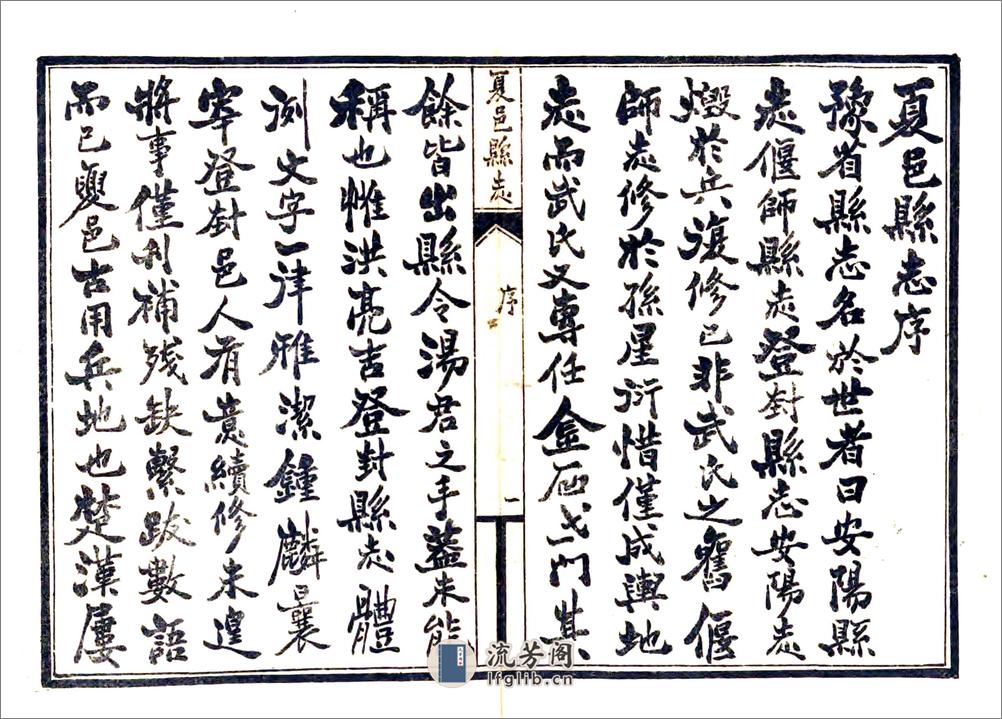 夏邑縣志序
豫省縣志名於世者曰安陽縣
志偃師縣志登封縣志安陽志
燬於兵復修已非武氏之舊偃
師志修於孫星衍惜僅成輿地
志而武氏又專任金石一門其
夏邑縣志
序
一
餘皆出縣令湯君之手蓋未能
稱也惟洪亮吉登封縣志體
例文字一律雅潔鍾麟曩
宰登封邑人有意續修未遑
將事僅刊補殘缺繫跋數語
而已夏邑古用兵地也楚漢屢
流芳阁
lfglib.cn